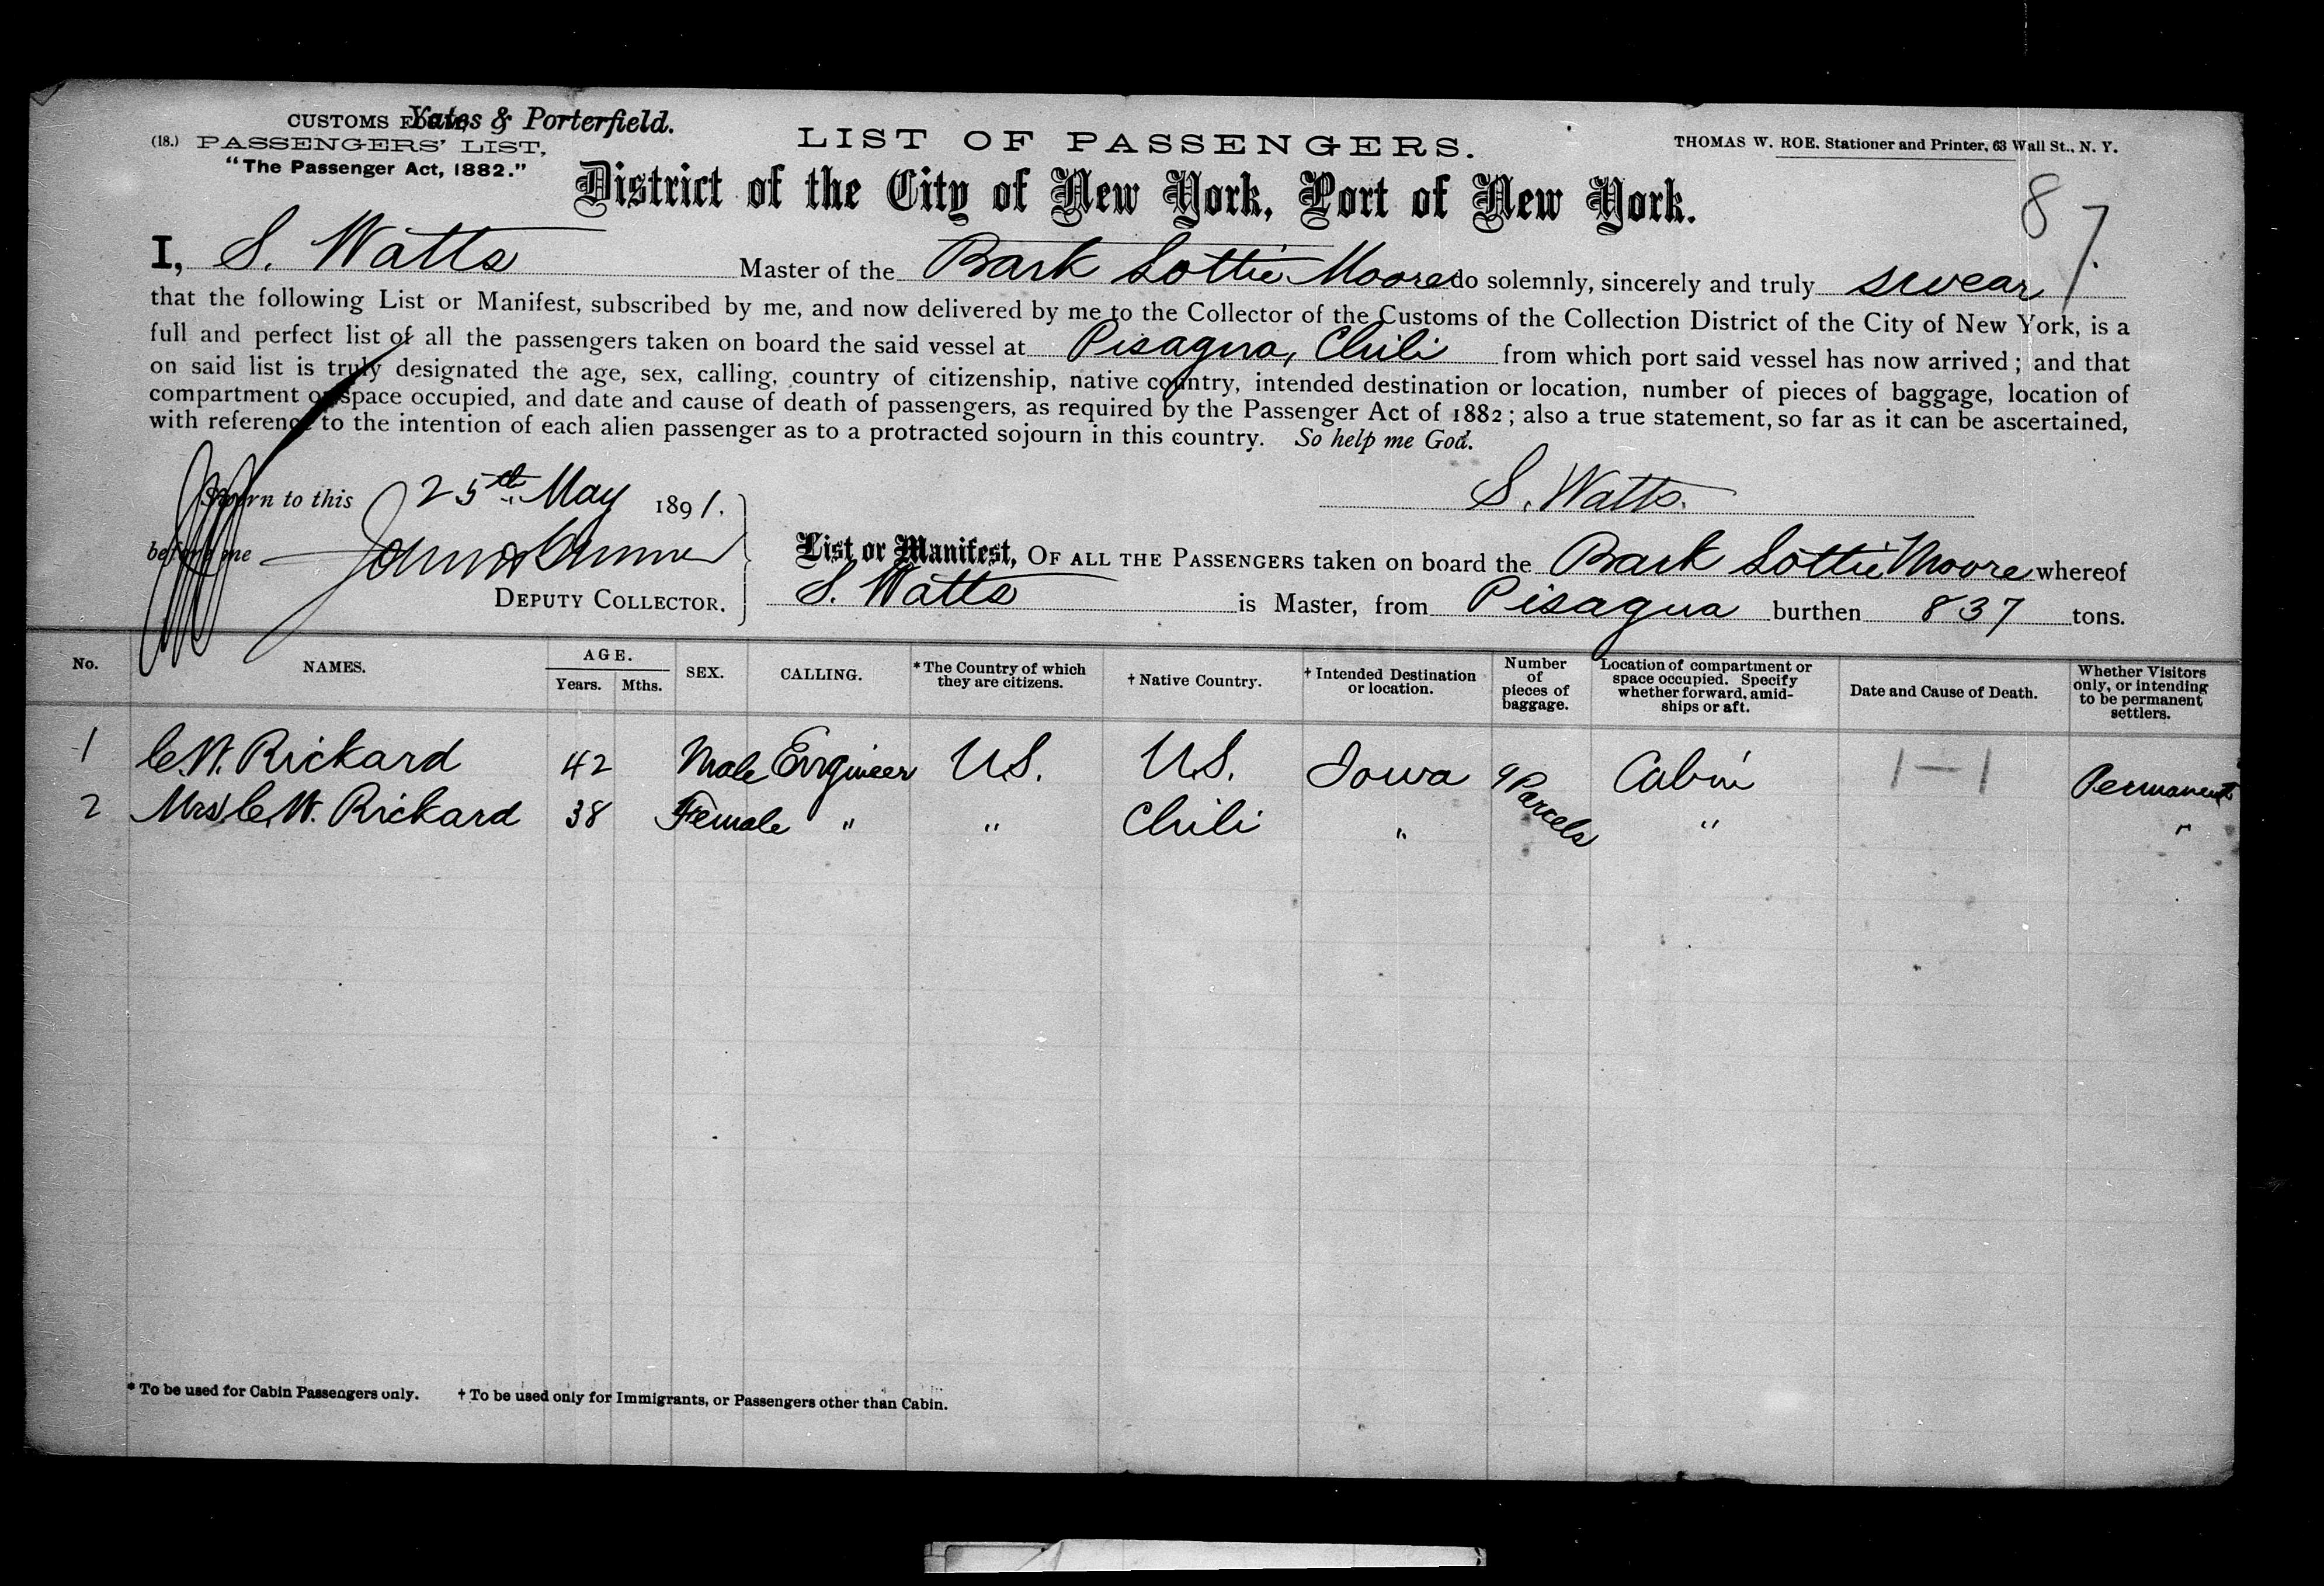 CUSTOMS FORM, Yates & Porterfield.
(18.) PASSENGERS' LIST,
"The Passenger Act, 1882."
LIST OF PASSENGERS.
THOMAS W. ROE, Stationer and Printer, 63 Wall St., N. Y.
District of the City of New York, Port of New York.
87.
I, S. Watts Master of the Bark Lottie Moore do solemnly, sincerely and truly swear
that the following List or Manifest, subscribed by me, and now delivered by me to the Collector of the Customs of the Collection District of the City of New York, is a
full and perfect list of all the passengers taken on board the said vessel at Pisagua, Chili from which port said vessel has now arrived; and that
on said list is truly designated the age, sex, calling, country of citizenship, native country, intended destination or location, number of pieces of baggage, location of
compartment or space occupied, and date and cause of death of passengers, as required by the Passenger Act of 1882; also a true statement, so far as it can be ascertained,
with reference to the intention of each alien passenger as to a protracted sojourn in this country. So help me God.
Sworn to this 25th May 1891.
S. Watts.
before me
DEPUTY COLLECTOR.
List or Manifest, OF ALL THE PASSENGERS taken on board the Bark Lottie Moore whereof
S. Watts is Master, from Pisagua burthen 837 tons.
No. NAMES. AGE. Years. Mths. SEX. CALLING. *The Country of which they are citizens. † Native Country. † Intended Destination or location. Number of pieces of baggage. Location of compartment or space occupied. Specify whether forward, amidships or aft. Date and Cause of Death. Whether Visitors only, or intending to be permanent settlers.
1 C.W. Rickard 42 Male Engineer U.S. U.S. Iowa 9 Parcels Cabin 1—1 Permanent
2 Mrs C.W. Rickard 38 Female " " Chili " " "
* To be used for Cabin Passengers only. † To be used only for Immigrants, or Passengers other than Cabin.